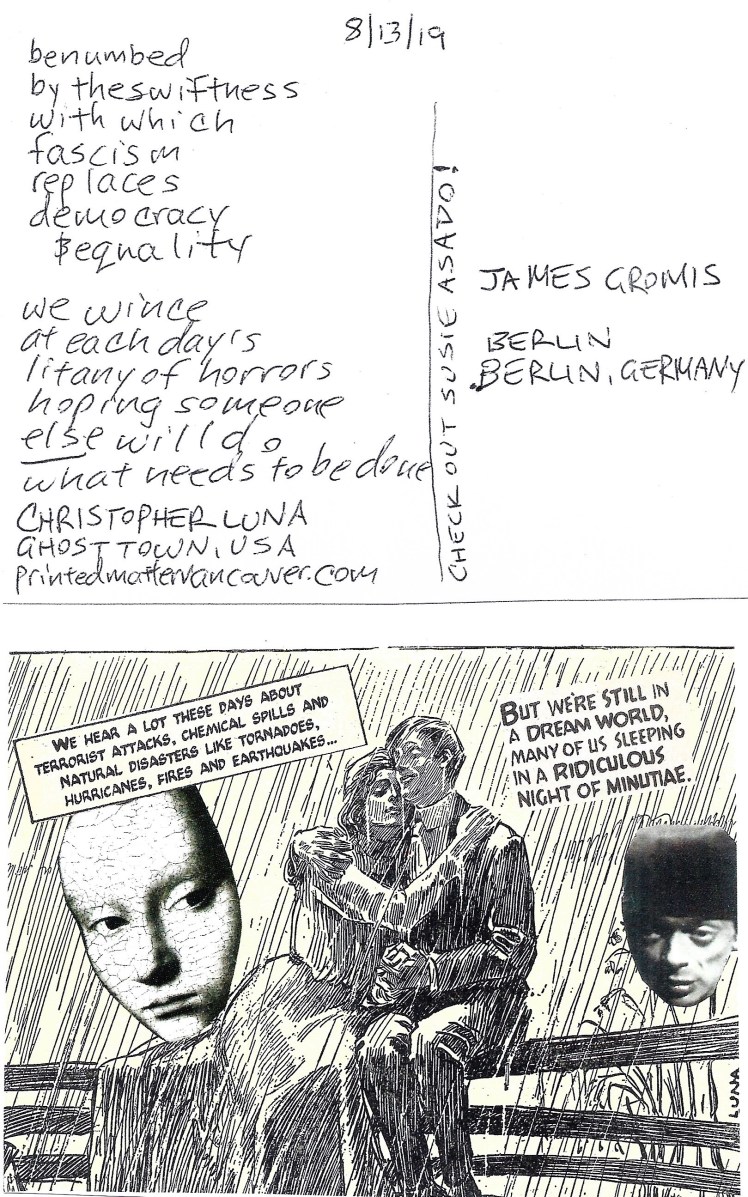 8/13/19
benumbed
by the swiftness
with which
fascism
replaces
democracy
& equality
we wince
at each day's
litany of horrors
hoping someone
else will do
what needs to be done
CHRISTOPHER LUNA
GHOST TOWN, USA
printedmattervancouver.com
CHECK OUT SUSIE ASADO!
JAMES GROMIS
BERLIN
BERLIN, GERMANY
WE HEAR A LOT THESE DAYS ABOUT
TERRORIST ATTACKS, CHEMICAL SPILLS AND
NATURAL DISASTERS LIKE TORNADOES,
HURRICANES, FIRES AND EARTHQUAKES...
BUT WE'RE STILL IN
A DREAM WORLD,
MANY OF US SLEEPING
IN A RIDICULOUS
NIGHT OF MINUTIAE.
LUNA